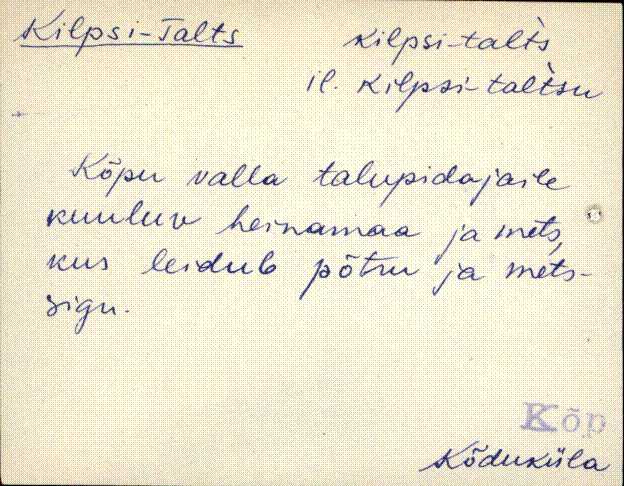 Kilpsi-Talts
kilpsi-tal̀ts
il. kilpsi-tal̀tsu
Kõpu valla talupidajaile
kuuluv heinamaa ja mets,
kus leidub põtru ja mets-
sigu.
Kõp
Kõduküla